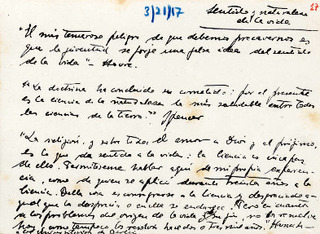 3/21/17
27
Sentido y naturaleza
de la vida
"El más temeroso peligro de que debemos precavernos es
que la juventud se forje una falsa idea del sentido
de la vida" -
"La doctrina ha concluido su cometido: por el presente
es la ciencia de la naturaleza la más saludable entre todas
las ciencias de la tierra" Spencer
"La religión, y sobre todo el amor a Dios y al prójimo,
es lo que da sentido a la vida: la ciencia es incapaz
de ello. Permítaseme hablar aquí de mi propia experien-
cia, como de quien se aplicó durante treinta años a la
ciencia. Debe uno consagrarse a la ciencia y
igual que la desprecia o en ella se
a los problemas del origen de la vida y su fin, no los resuelve
hoy y tampoco los resolverá dentro de treinta años."